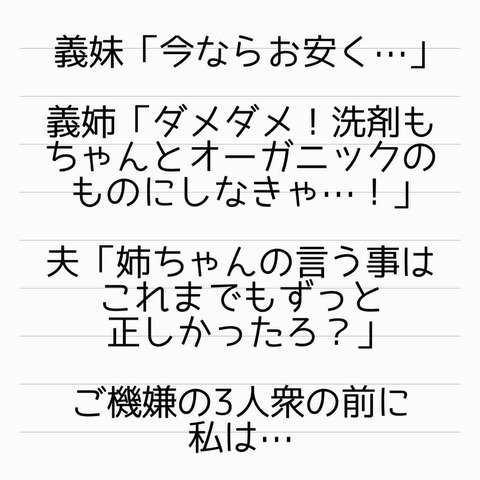 義妹「今ならお安く…」
義姉「ダメダメ！洗剤も
ちゃんとオーガニックの
ものにしなきゃ…！」
夫「姉ちゃんの言う事は
これまでもずっと
正しかったろ？」
ご機嫌の3人衆の前に
私は…